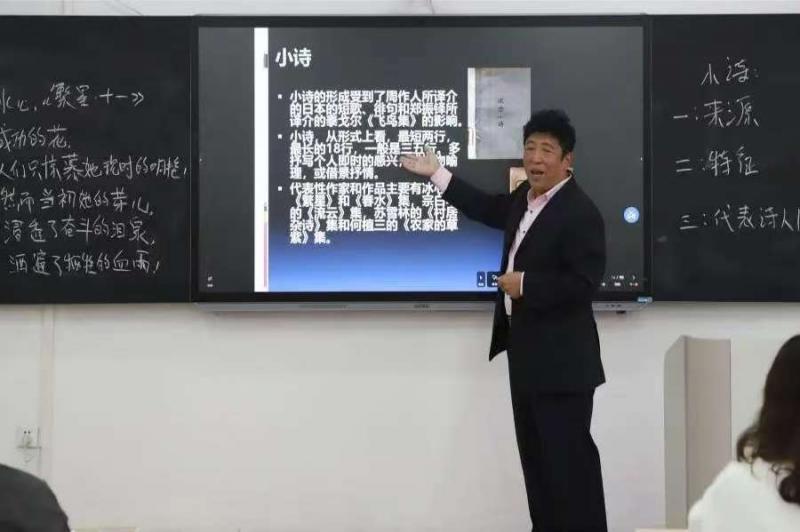 冰心,《繁星·十一》
成功的花,
人们只惊慕她现时的明艳,
然而当初她的芽儿,
浸透了奋斗的泪泉,
洒遍了牺牲的血雨!
小诗
• 小诗的形成受到了周作人所译介
的日本的短歌、俳句和郑振铎所
译介的泰戈尔《飞鸟集》的影响。
• 小诗,从形式上看,最短两行,
最长的18行,一般是三五行,多
抒写个人即时的感兴 物喻
理,或借景抒情。
• 代表性作家和作品主要有冰心
《繁星》和《春水》集、宗白
的《流云》集、苏雪林的《村居
杂诗》集和何植三的《农家的草
紫》集。
小诗:
一:来源
二:特征
三:代表诗人